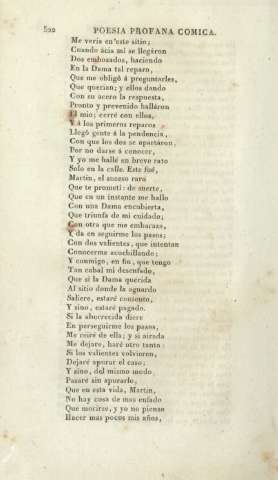 520 POESIA PROFANA COMICA.
Me veria en este sitio;
Quando ácia mí se llegáron
Dos embozados, haciendo
En la Dama tal reparo,
Que me obligó á preguntarles,
Que querian; y ellos dando
Con su acero la respuesta,
Pronto y prevenido halláron
El mio; cerré con ellos,
Y á los primeros reparos
Llegó gente á la pendencia,
Con que los dos se apartáron,
Por no darse á conocer,
Y yo me hallé en breve rato
Solo en la calle. Este fué,
Martin, el suceso raro
Que te prometí: de suerte,
Que en un instante me hallo
Con una Dama encubierta,
Que triunfa de mi cuidado;
Con otra que me embaraza,
Y da en seguirme los pasos;
Con dos valientes, que intentan
Conocerme acuchillando;
Y conmigo, en fin, que tengo
Tan cabal mi desenfado,
Que si la Dama querida
Al sitio donde la aguardo
Saliere, estaré contento,
Y sino, estaré pagado.
Si la aborrecida diere
En perseguirme los pasos,
Me reiré de ella; y si airada
Me dejare, haré otro tanto:
Si los valientes volvieren,
Dejaré apurar el caso;
Y sino, del mismo modo
Pasaré sin apurarlo,
Que en esta vida, Martin,
No hay cosa de mas enfado
Que morirse, y yo no pienso
Hacer mas pocos mis años,